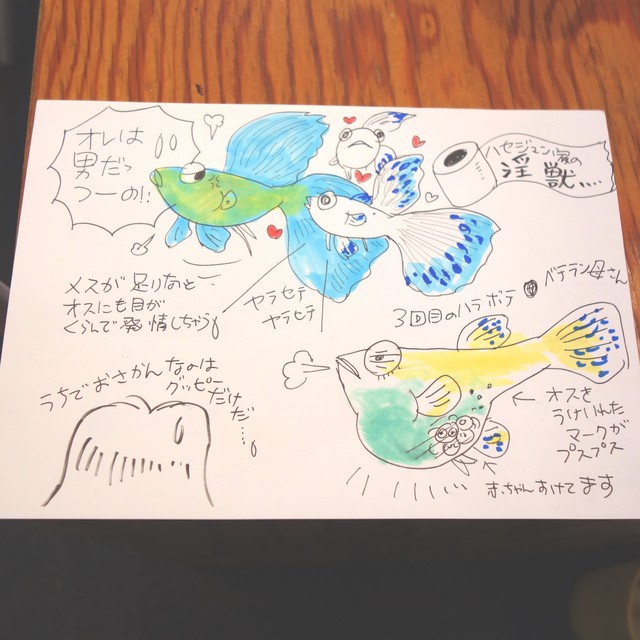 オレは
男だっ
つーの!!
ハセジマン家の
淫獣....
メスが足りないと
オスにも目が
くらんで発情しちゃう
ヤラセテ
ヤラセテ
ベテラン母さん
3回目のハラボテ
うちでおさかんなのは
グッピーだけ
だ....
オスを
うけいれた
マークが
プスプス
赤ちゃんすけてます